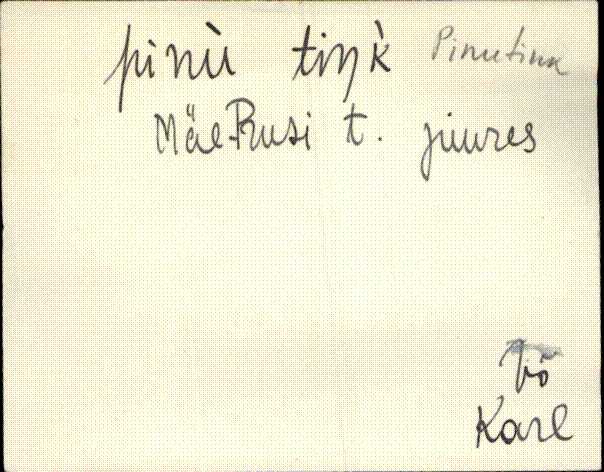 pinù tiŋk̀ Pinutink
Mäe-Prusi t. juures
Võ
Karl